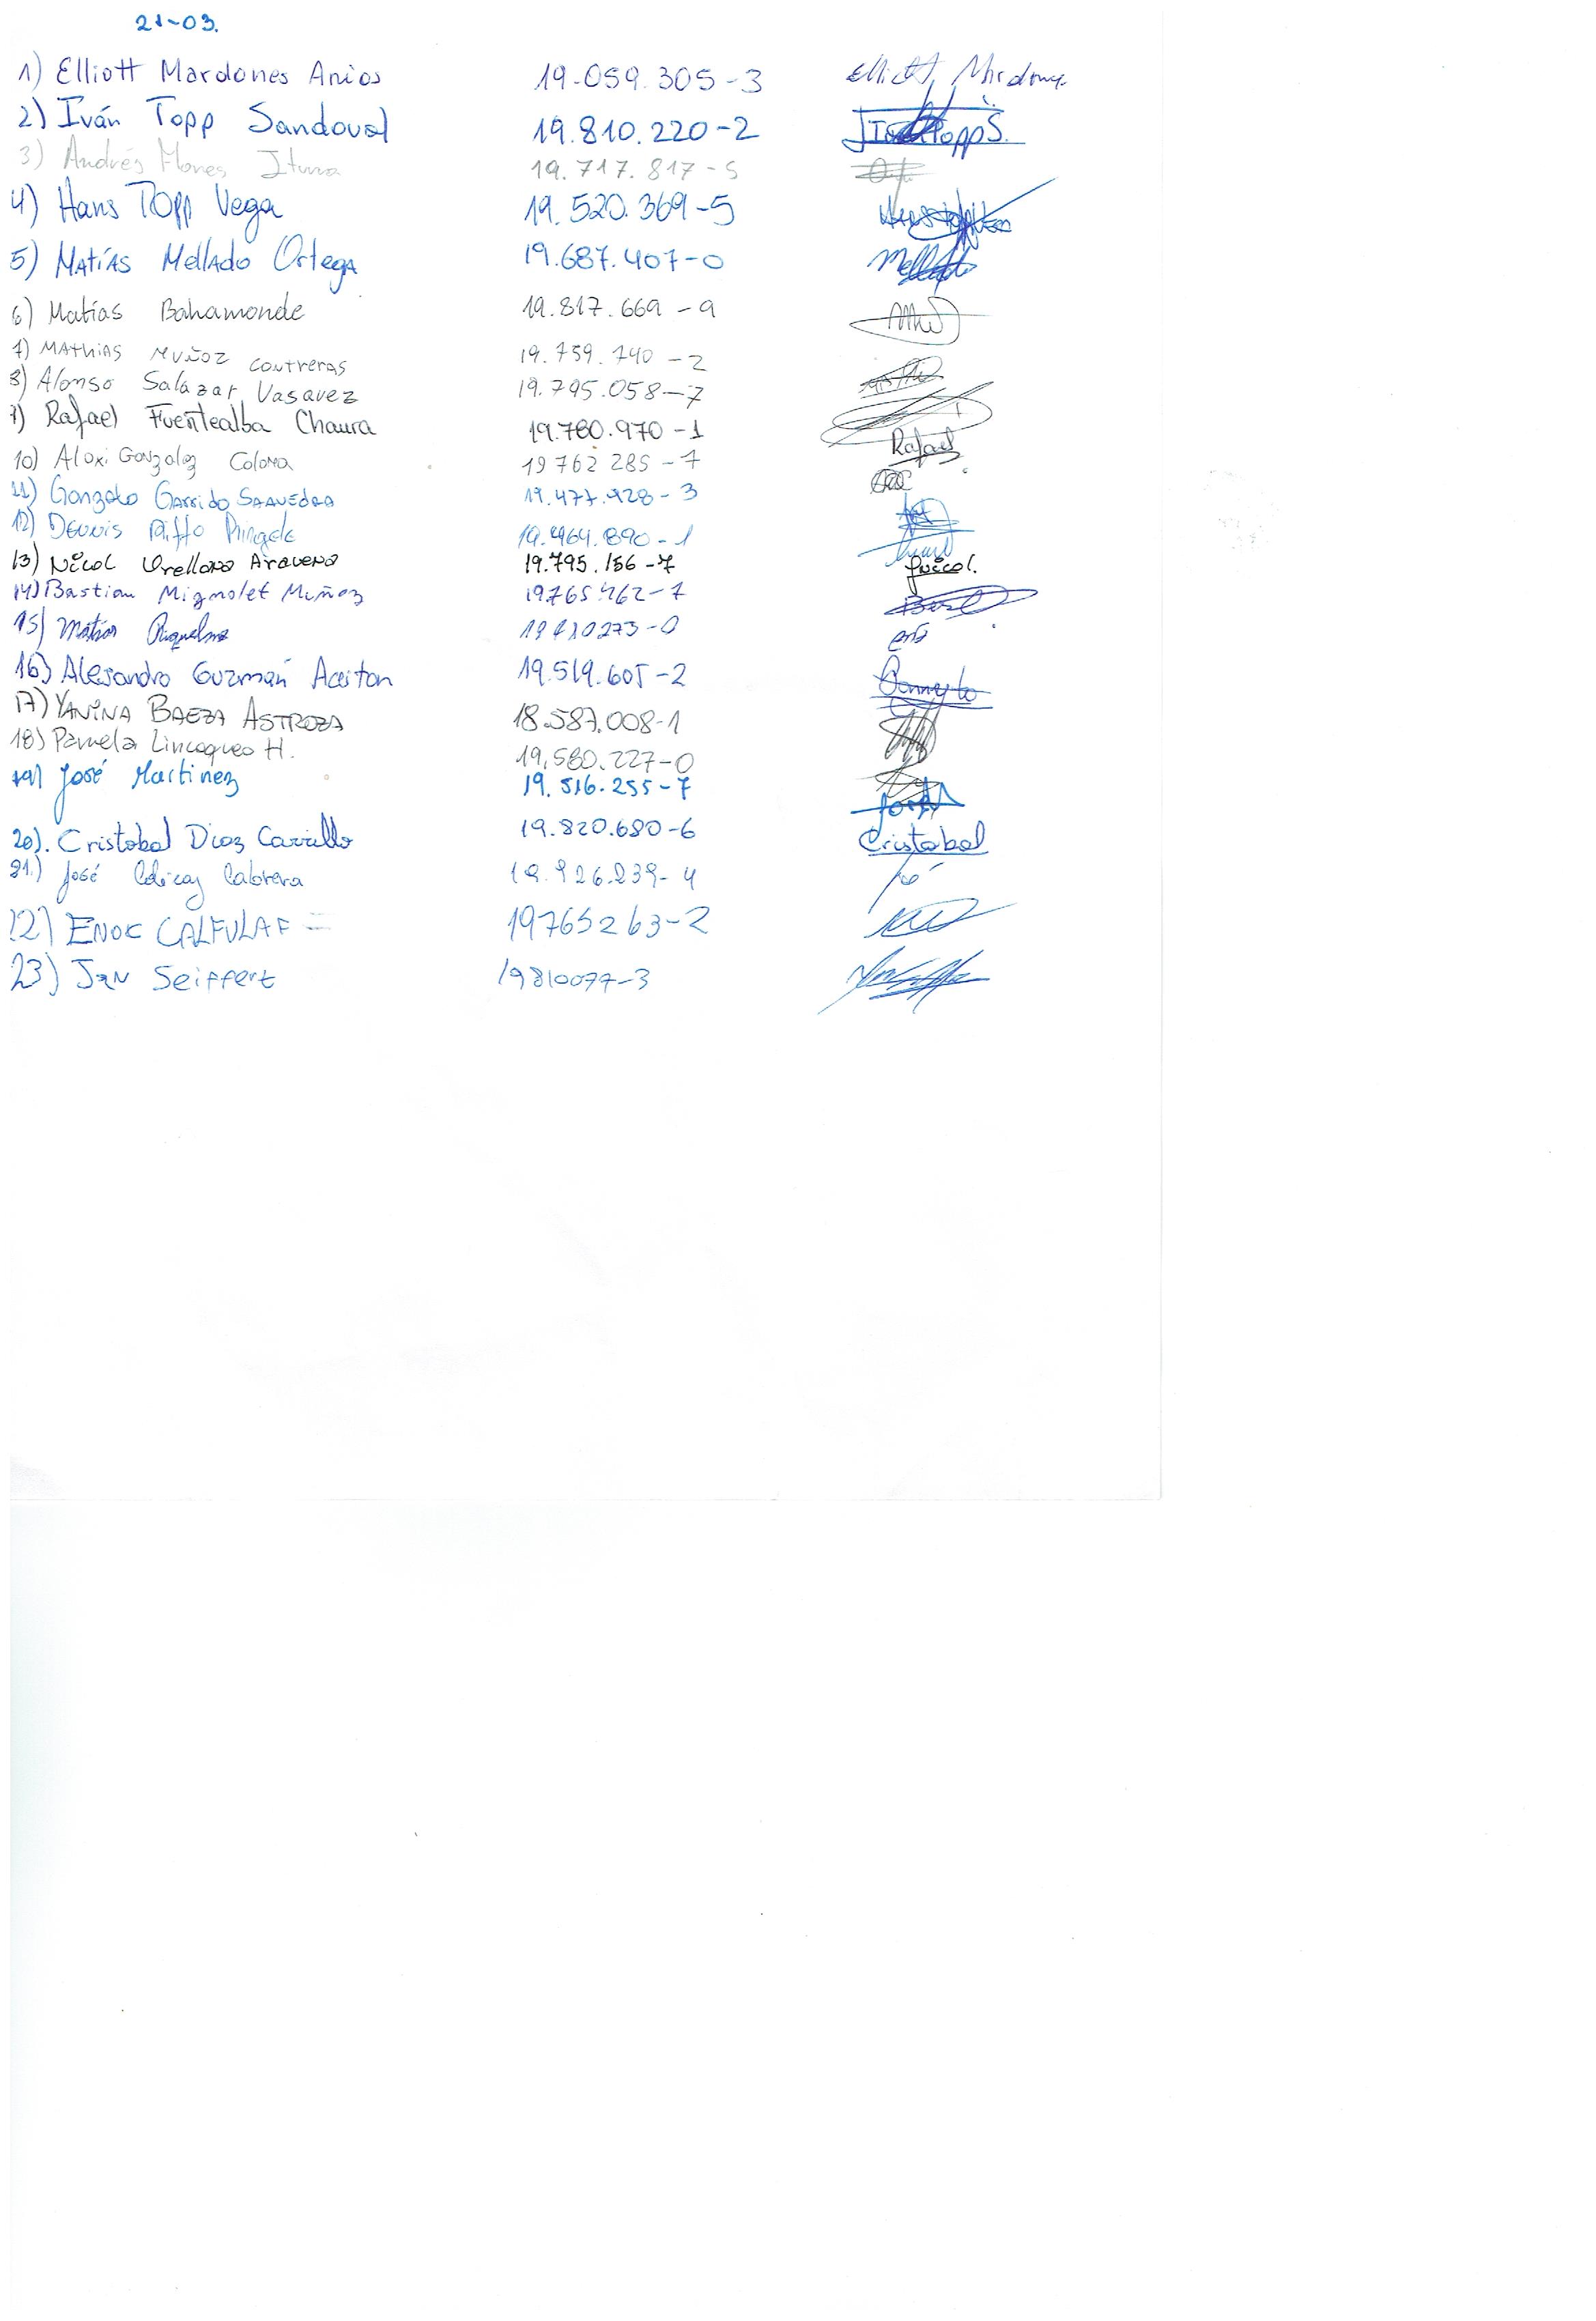 21-03.
1) Elliott Mardones Arios 19.059.305-3 Elliott Mardones
2) Iván Topp Sandoval 19.810.220-2 Iván Topp S.
3) Andrés Flores 19.717.817-5
4) Hans Topp Vega 19.520.369-5
5) Matías Mellado Ortega 19.687.407-0 Mellado
6) Matías Bahamonde 19.817.669-9
7) Mathias Muñoz Contreras 19.759.740-2
8) Alonso Salazar Vasquez 19.795.058-7
9) Rafael Fuentealba Chaura 19.780.970-1 Rafael
10) Alexi Gonzalez Coloma 19 762 285-7
11) Gonzalo Garrido Saavedra 19.477.928-3
12) Dennis Riffo 19.464.890-1
13) Nicol Orellana Araveno 19.795.156-7 Nicol.
14) Bastian Mignolet Muñoz 19765.462-7
15) Matías Riquelme
16) Alejandro Guzmán 19.519.605-2
17) Yanina Baeza Astroza 18.587.008-1
18) Pamela Lincoqueo H. 19.580.227-0
19) José Martinez 19.516.255-7 José
20). Cristobal Diaz Carrillo 19.820.680-6 Cristobal
21.) José Cabrera 19.926.239-4
22) ENOC CALFULAF 19765263-2
23) Jan Seiffert 19810077-3